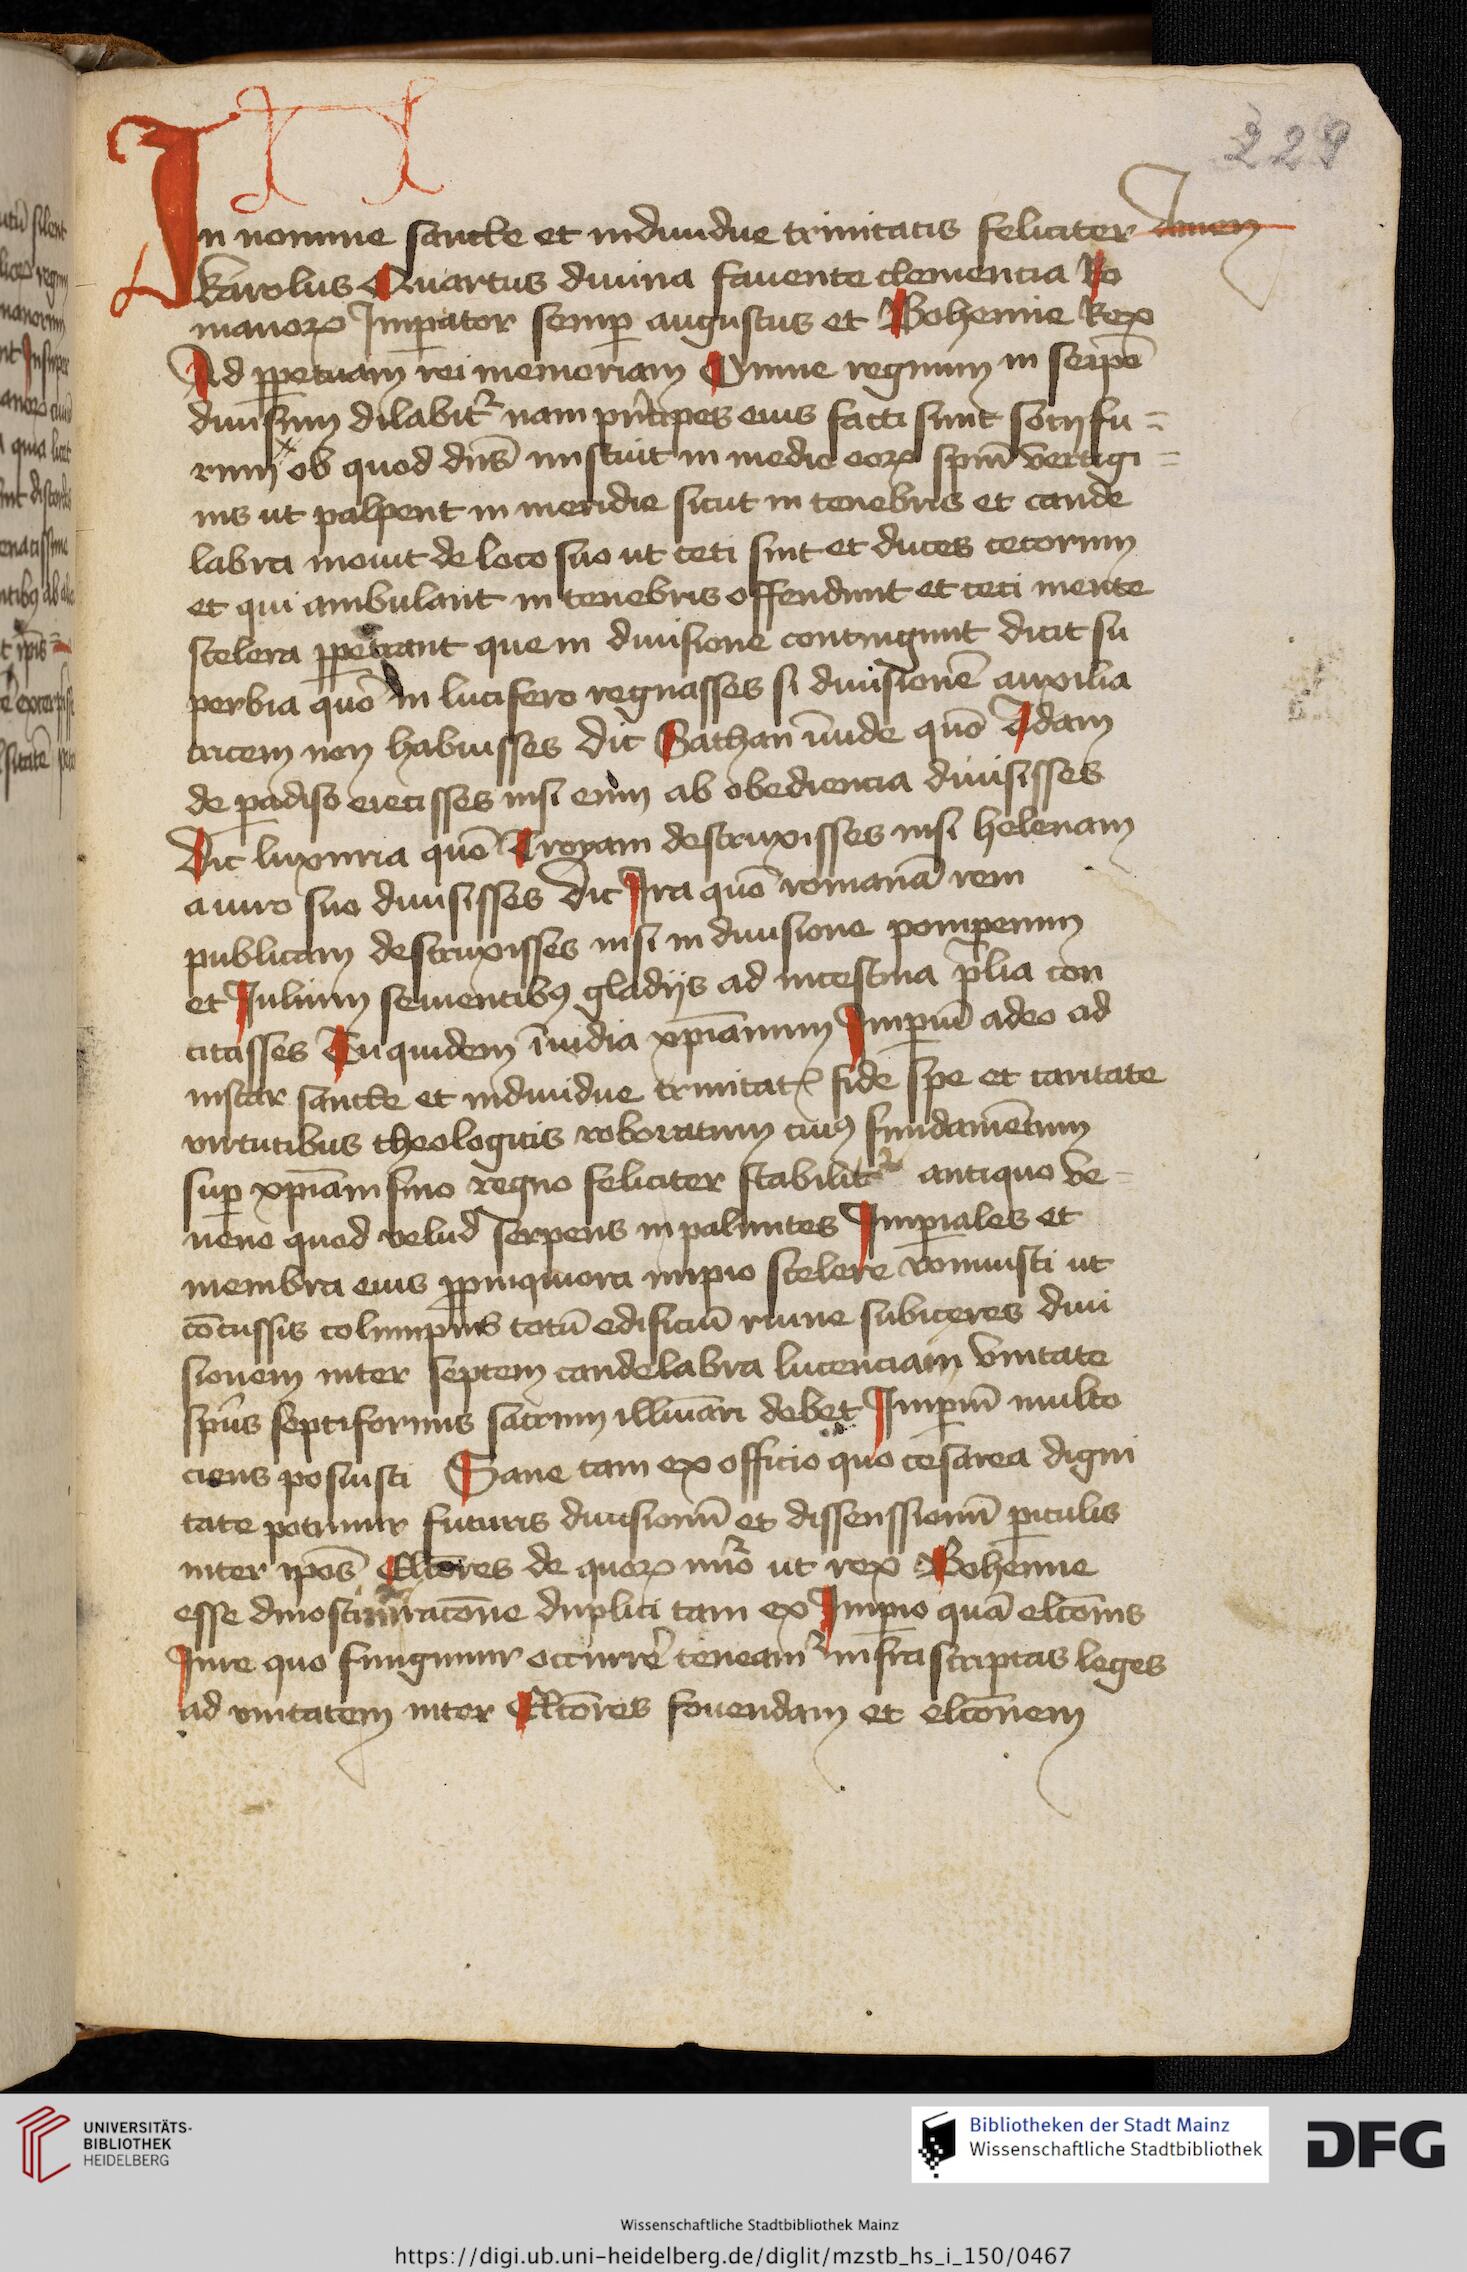 229
In nomine sancte et indiuidue trinitatis feliciter Amen
karolus Quartus diuina fauente clementia Ro
manorꝝ Impator semp augustus et Bohemie Rex
Ad ppetuam rei memoriam Omne regnum in seipē
diuisum dilabit᷑ nam pⁱncipes eius facti sunt socij fu=
rum ob quod dn̄s miscuit in medio eorꝝ spm̄ vertigi=
nis ut palpent in meridie sicut in tenebris et cande
labra mouit de loco suo ut ceci sint et duces cecorum
et qui ambulant in tenebris offendunt et ceci mente
scelera ppetrant que in diuisione contingunt dicit su
perbia quō in lucifero regnasses si diuisionē auxilia
tricem non habuisses dic Sathan īuide quō Adam
de padiso eiecisses nisi eum ab obediencia diuisisses
Dic luxuria quō Troyam destruxisses nisi helenam
a uiro suo diuisisses Dic Ira quō romanā rem
publicam destruxisses nisi in diuisione pompeium
et Iulium seuientibꝯ gladijs ad intestina p̄lia con
citasses Tu quidem īuidia xp̄ianum Impiū adeo ad
instar sancte et indiuidue trinitatꝭ fide spe et caritate
virtutibus theologicis roboratum cuiꝯ fundamētum
sup xp̄ianissimo regno feliciter stabilit᷑ antiquo ve=
neno quod velud serpens in palmites Impiales et
membra eius ppinquiora impio scelere vomuisti ut
cōcussis columpnis totū edificiū ruine subiceres diui
sionem inter septem candelabra lucenciam vnitate
spūs septiformis sacrum illuīari debet Impiū multo
ciens posuisti Sane tam ex officio quo cesarea digni
tate potimur futuris diuisionū et dissenssionū piculis
inter ipōs Elcōres de quorꝝ nūo ut rex Bohemie
esse dinoscimur racōne duplici tam ex Impio quā elcōnis
Iure quo fungimur occurrē teneam᷑ infrascriptas leges
ad vnitatem inter Elcōres fouendam et elcōnem
UNIVERSITÄTS-
BIBLIOTHEK
HEIDELBERG
Bibliotheken der Stadt Mainz
Wissenschaftliche Stadtbibliothek
DFG
Wissenschaftliche Stadtbibliothek Mainz
https://digi.ub.uni-heidelberg.de/diglit/mzstb_hs_i_150/0467